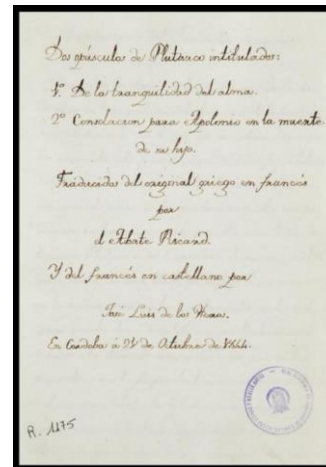 Dos opúsculos de Plutarco intitulados:
1º De la tranquilidad del alma.
2º Consolacion para Apolonio en la muerte
de su hijo.
Traducidos del original griego en francés
por
el Abate Ricard.
Y del francés en castellano por
José Luis de los Heros.
En Cordoba á 24 de Octubre de 1844.
R. 1175